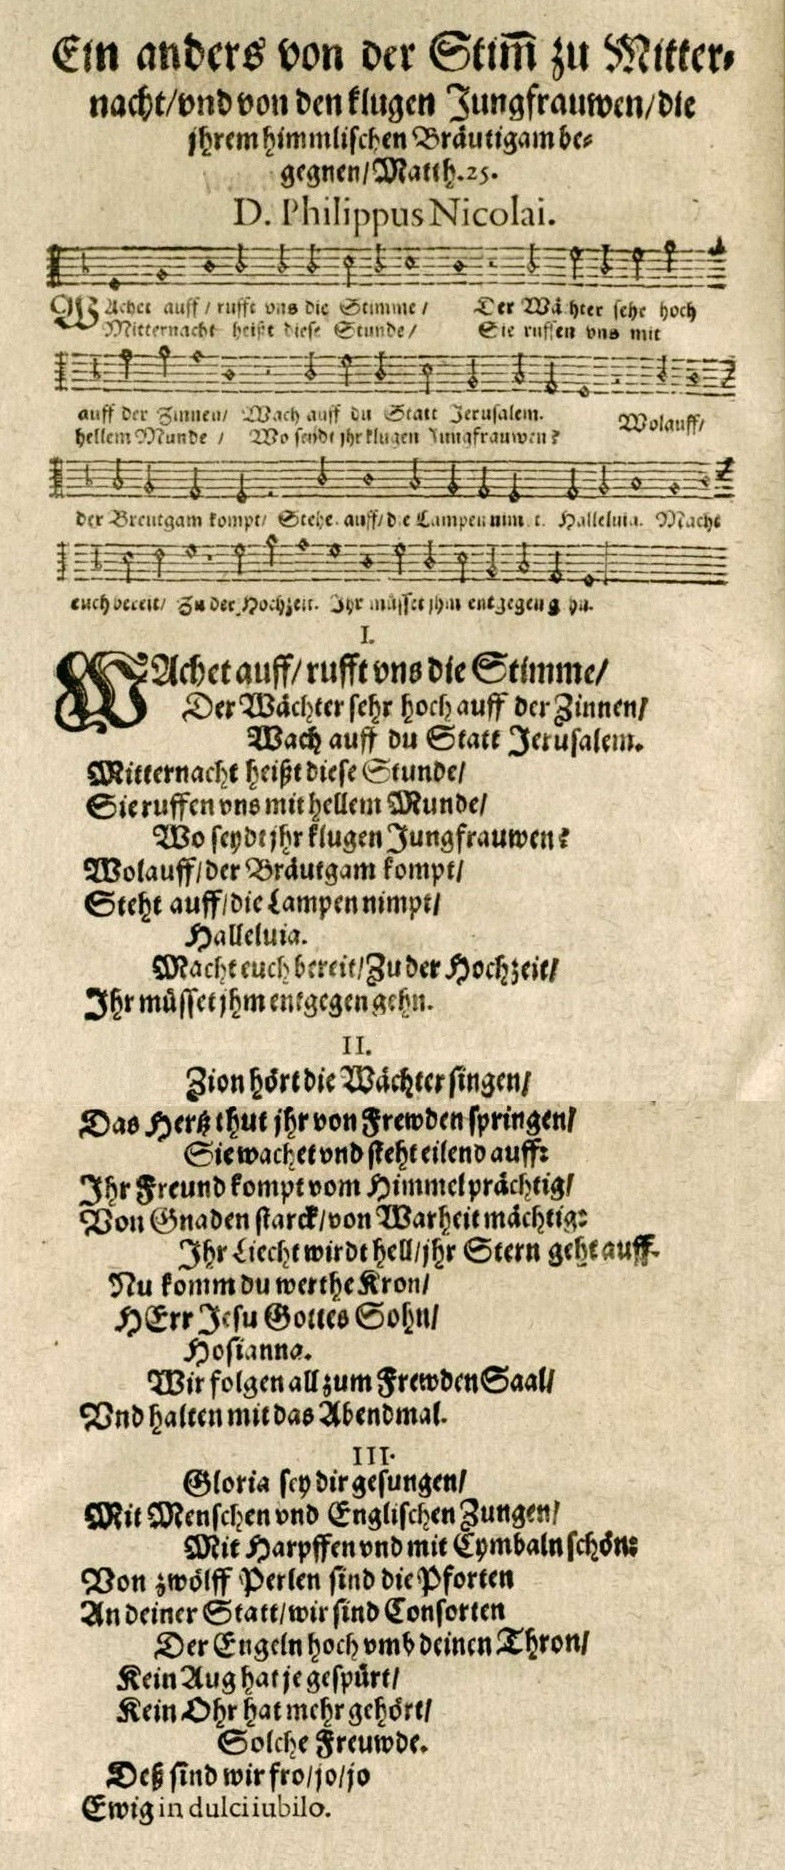 Ein anders von der Stim̅ zu Mitter⸗
nacht/ vnd von den klugen Jungfrauwen/ die
jhrem himmlischen Bräutigam be⸗
gegnen/ Matth. 25.
D. Philippus Nicolai.
WAchet auff/ rufft vns die Stimme/ Der Wächter sehr hoch
Mitternacht heißt diese Stunde/ Sie ruffen vns mit
auff der Zinnen/ Wach auff du Statt Jerusalem. Wolauff/
hellem Munde / Wo seydt jhr klugen Jungfrauwen?
der Breutgam kompt/ Stehe auff/ die Lampen nim t. Halleluia. Macht
euch bereit/ Zu der Hochzeit. Ihr müsset jhm entgegen g hn.
I.
WAchet auff/ rufft vns die Stimme/
Der Wächter sehr hoch auff der Zinnen/
Wach auff du Statt Jerusalem.
Mitternacht heißt diese Stunde/
Sie ruffen vns mit hellem Munde/
Wo seydt jhr klugen Jungfrauwen?
Wolauff/ der Bräutgam kompt/
Steht auff/ die Lampen nimpt/
Halleluia.
Macht euch bereit/ Zu der Hochzeit/
Ihr müsset jhm entgegen gehn.
II.
Zion hört die Wächter singen/
Das Hertz thut jhr von Frewden springen/
Sie wachet vnd steht eilend auff:
Ihr Freund kompt vom Himmel prächtig/
Von Gnaden starck/ von Warheit mächtig:
Ihr Liecht wirdt hell/ jhr Stern geht auff.
Nu komm du werthe Kron/
HErr Jesu Gottes Sohn/
Hosianna.
Wir folgen all zum Frewden Saal/
Vnd halten mit das Abendmal.
III.
Gloria sey dir gesungen/
Mit Menschen vnd Englischen Zungen/
Mit Harpffen vnd mit Cymbaln schön:
Von zwölff Perlen sind die Pforten
An deiner Statt/ wir sind Consorten
Der Engeln hoch vmb deinen Thron/
Kein Aug hat je gespürt/
Kein Ohr hat mehr gehört/
Solche Freuwde.
Deß sind wir fro/ jo/ jo
Ewig in dulci iubilo.